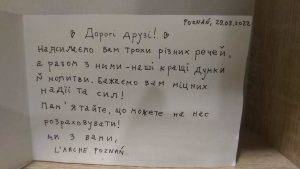 POZNAŃ, 29.09.2022
♡ Дорогі друзі! ♡
Надсилаємо вам трохи різних речей,
а разом з ними – наші кращі думки
й молитви. Бажаємо вам міцних
надії та сил!
Пам'ятайте, що можете на нас
розраховувати!
Ми з вами,
L'ARCHE POZNAŃ